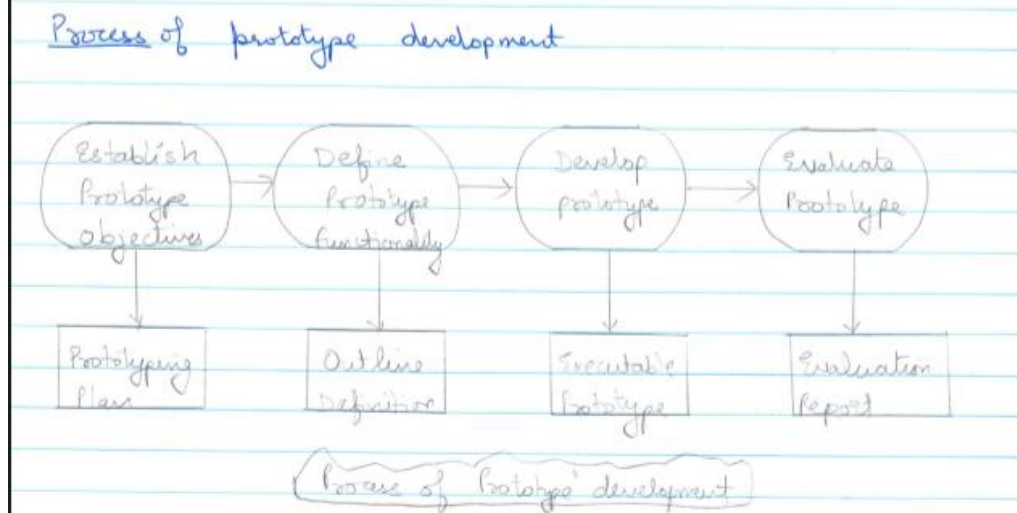 Process of prototype development
Establish
Prototype
Objectives
Define
Prototype
functionality
Develop
prototype
Evaluate
Prototype
Prototyping
Plan
Outline
Definition
Executable
Prototype
Evaluation
Report
Process of Prototype development